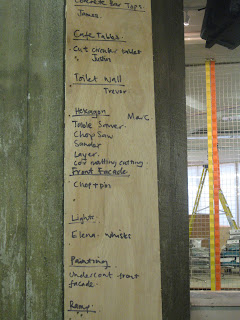 Concrete Bar Tops.
James.
Cafe Tables.
Cut circular tablet
" Justin
Toilet Wall
Trevor.
Hexagon Marc
Table Sawer.
Chop Saw
Sander
Layer.
cnr matting cutting.
Front Facade
Chop + pin
"
Lights
Elena - whisks
Painting
Undercoat front
facade.
Ramp.